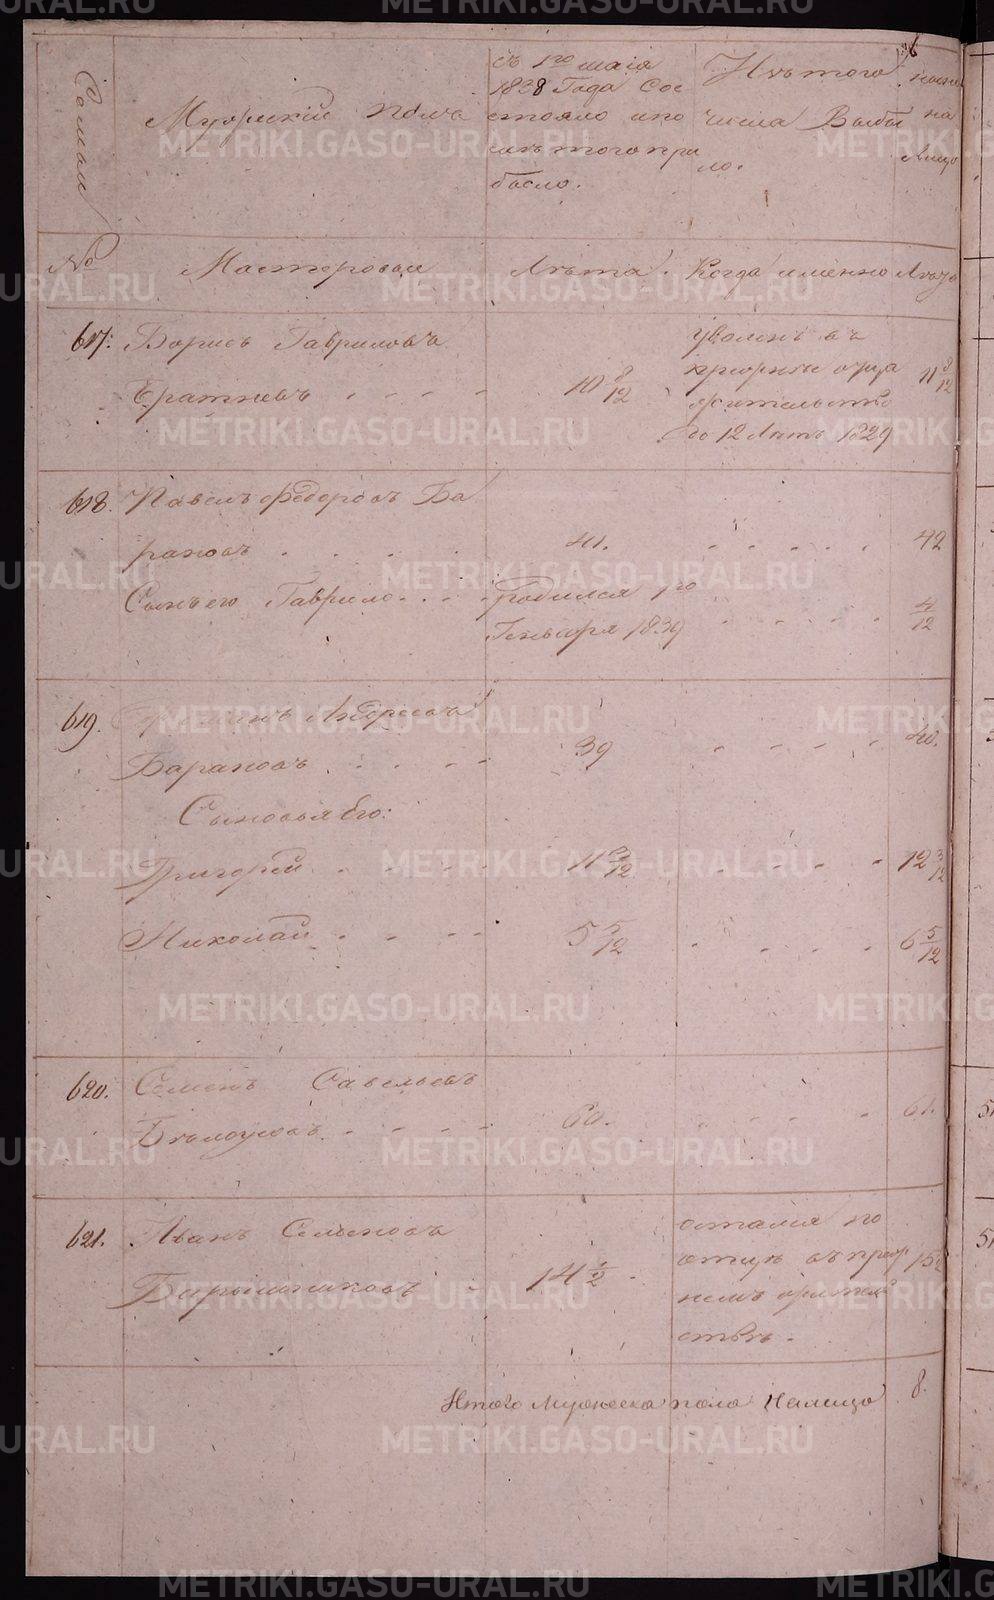 Семьи
Мужескiй полъ
съ 1го маiя
1838 Года Сос
тояло и по
слѣ того при
было.
Изъ того
числа Выбы
ло.
на
лицо
№
Мастеровые
Лѣта.
Когда именно
Лѣта
617. Борисъ Гавриловъ
10 8/12
уволенъ въ
до 12 Лѣтъ 1829
11 8/12
618. Павелъ Федоровъ Ба
рановъ
41.
42
Сынъ его Гаврило
родился 1го
Генваря 1839
4/12
619. Андреевъ
Барановъ
39
40.
Сыновья его:
Григорей
11 3/12
12 3/12
Николай
5 5/12
6 5/12
620. Семенъ Савельевъ
Бѣлоусовъ
60.
61.
621. Иванъ Семеновъ
Барышниковъ
14 1/2
остался по
немъ жител
ствѣ.
Итого Мужеска пола Налицо
8.
METRIKI.GASO-URAL.RU